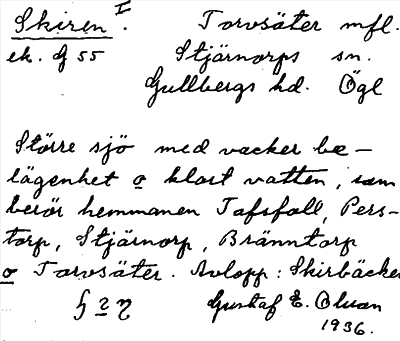 Skiren I. Torvsäter mfl.
ek. G 55 Stjärnorps sn.
Gullbergs hd. Ögl
Större sjö med vacker be-
lägenhet o klart vatten, som
berör hemmanen Tafsfall, Pers-
torp, Stjärnorp, Bränntorp
o Torvsäter. Avlopp: Skirbäcken
Gustaf E. Olsson
1936.